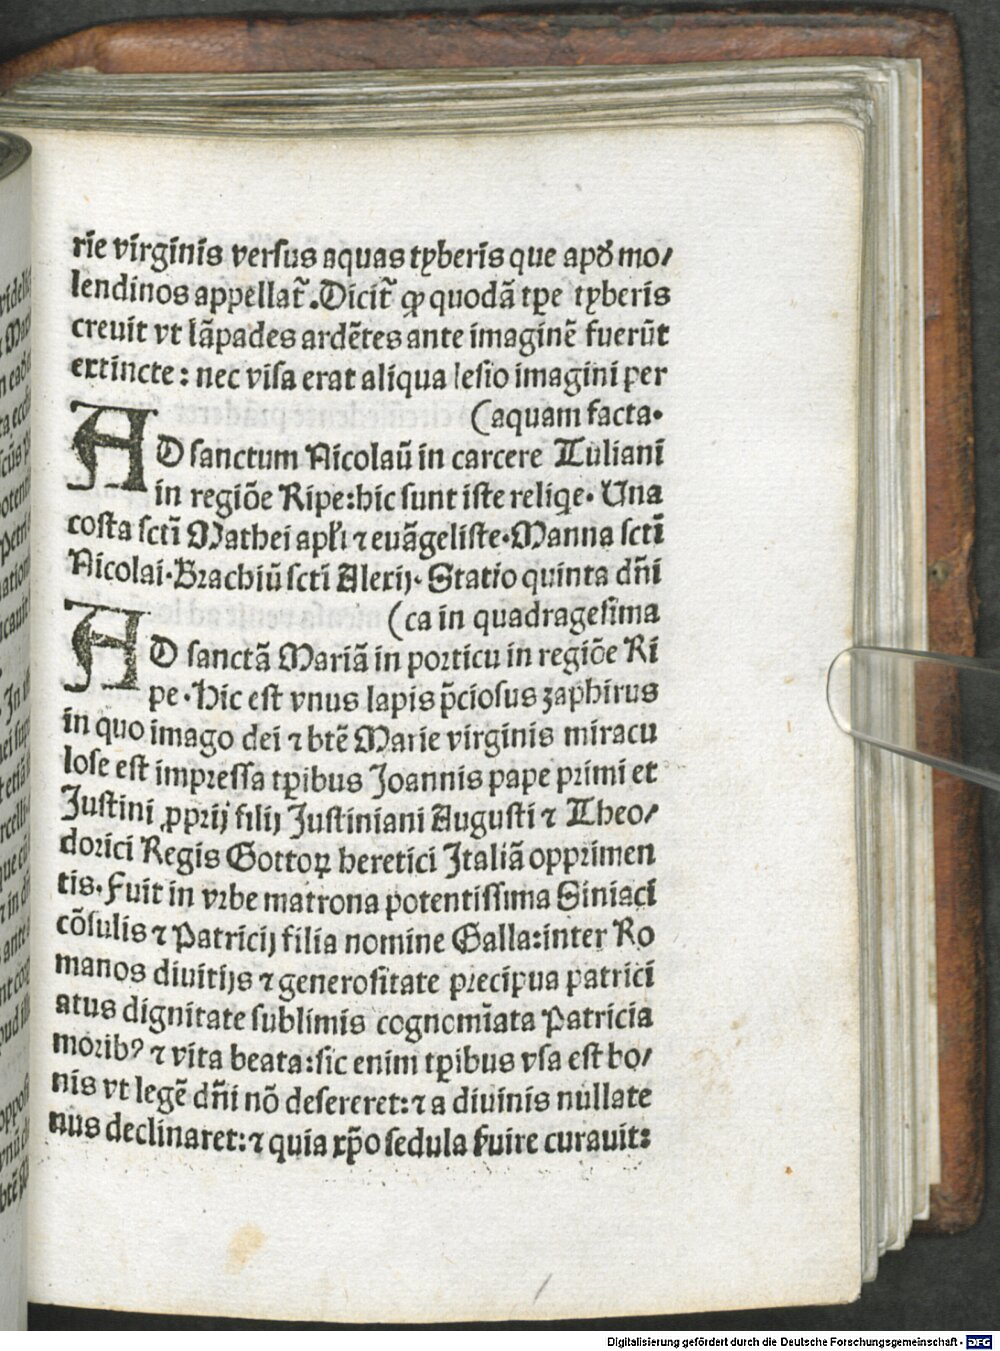 rie virginis versus aquas tyberis que apđ mo/
lendinos appellat̃. Dicit̃ ꝙ quodã tꝑe tyberis
creuit vt lãpades ardẽtes ante imaginẽ fuerũt
extincte: nec visa erat aliqua lesio imagini per
(aquam facta.
AD sanctum Nicolaũ in carcere Tuliani
in regiõe Ripe: hic sunt iste reliqe. Una
costa sctĩ Mathei apl̃i ⁊ euãgeliste. Manna sctĩ
Nicolai. Brachiũ sctĩ Alexij. Statio quinta dñi
(ca in quadragesima
AD sanctã Mariã in porticu in regiõe Ri
pe. Hic est vnus lapis p̃ciosus zaphirus
in quo imago dei ⁊ btẽ Marie virginis miracu
lose est impressa tꝑibus Joannis pape primi et
Justini ꝓprij filij Justiniani Augusti ⁊ Theo/
dorici Regis Gottoꝝ heretici Italiã opprimen
tis. Fuit in vrbe matrona potentissima Siniaci
cõsulis ⁊ Patricij filia nomine Galla: inter Ro
manos diuitijs ⁊ generositate precipua patrici
atus dignitate sublimis cognomĩata Patricia
moribꝰ ⁊ vita beata: sic enim tꝑibus vsa est bo/
nis vt legẽ dñi nõ desereret: ⁊ a diuinis nullate
nus declinaret: ⁊ quia xp̃o sedula ẜuire curauit:
Digitalisierung gefördert durch die Deutsche Forschungsgemeinschaft - DFG